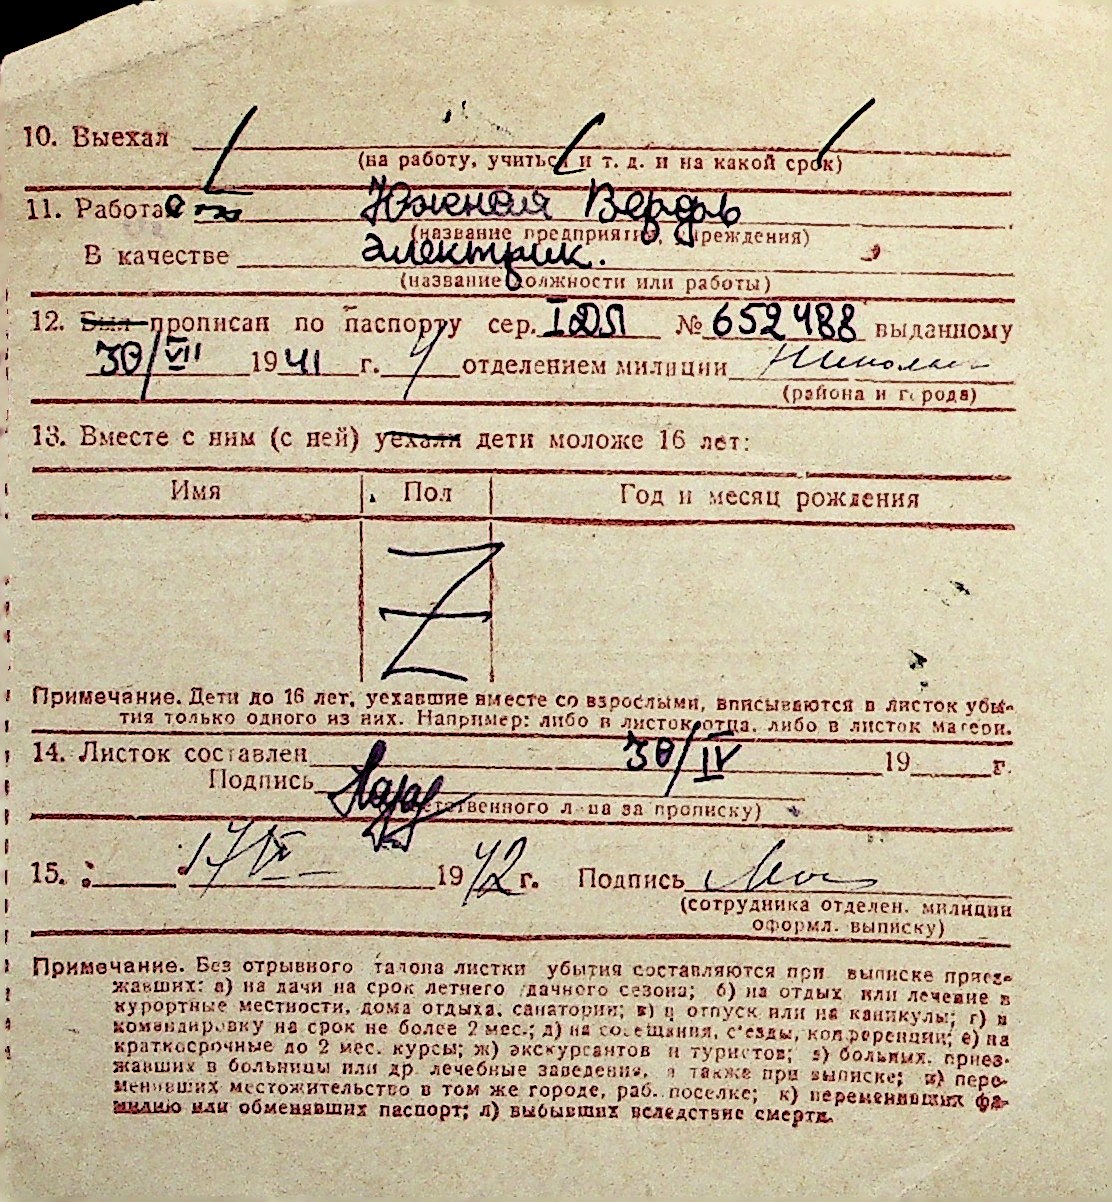 10. Выехал
(на работу, учиться и т. д. и на какой срок)
11. Работае Южная Вердь
(название предприятия, учреждения)
В качестве электрик.
(название должности или работы)
12. Был прописан по паспорту сер. IДЛ № 652488 выданному
30/VII 1941 г. отделением милиции
(района и города)
13. Вместе с ним (с ней) уехали дети моложе 16 лет:
Имя Пол Год и месяц рождения
Z
Примечание. Дети до 16 лет, уехавшие вместе со взрослыми, вписываются в листок убы-
тия только одного из них. Например: либо в листок отца, либо в листок матери.
14. Листок составлен 30/IV 19 г.
Подпись
ответственного лица за прописку)
15. 17/VI 1942 г. Подпись
(сотрудника отделен. милиции
оформл. выписку)
Примечание. Без отрывного талона листки убытия составляются при выписке приез-
жавших: а) на дачи на срок летнего дачного сезона; б) на отдых или лечение в
курортные местности, дома отдыха, санатории; в) в отпуск или на каникулы; г) в
командировку на срок не более 2 мес.; д) на совещания, с'езды, конференции; е) на
краткосрочные до 2 мес. курсы; ж) экскурсантов и туристов; з) больных, приез-
жавших в больницы или др. лечебные заведения, а также при выписке; и) пере-
менивших местожительство в том же городе, раб. поселке; к) переменивших фа-
милию или обменявших паспорт; л) выбывших вследствие смерти.